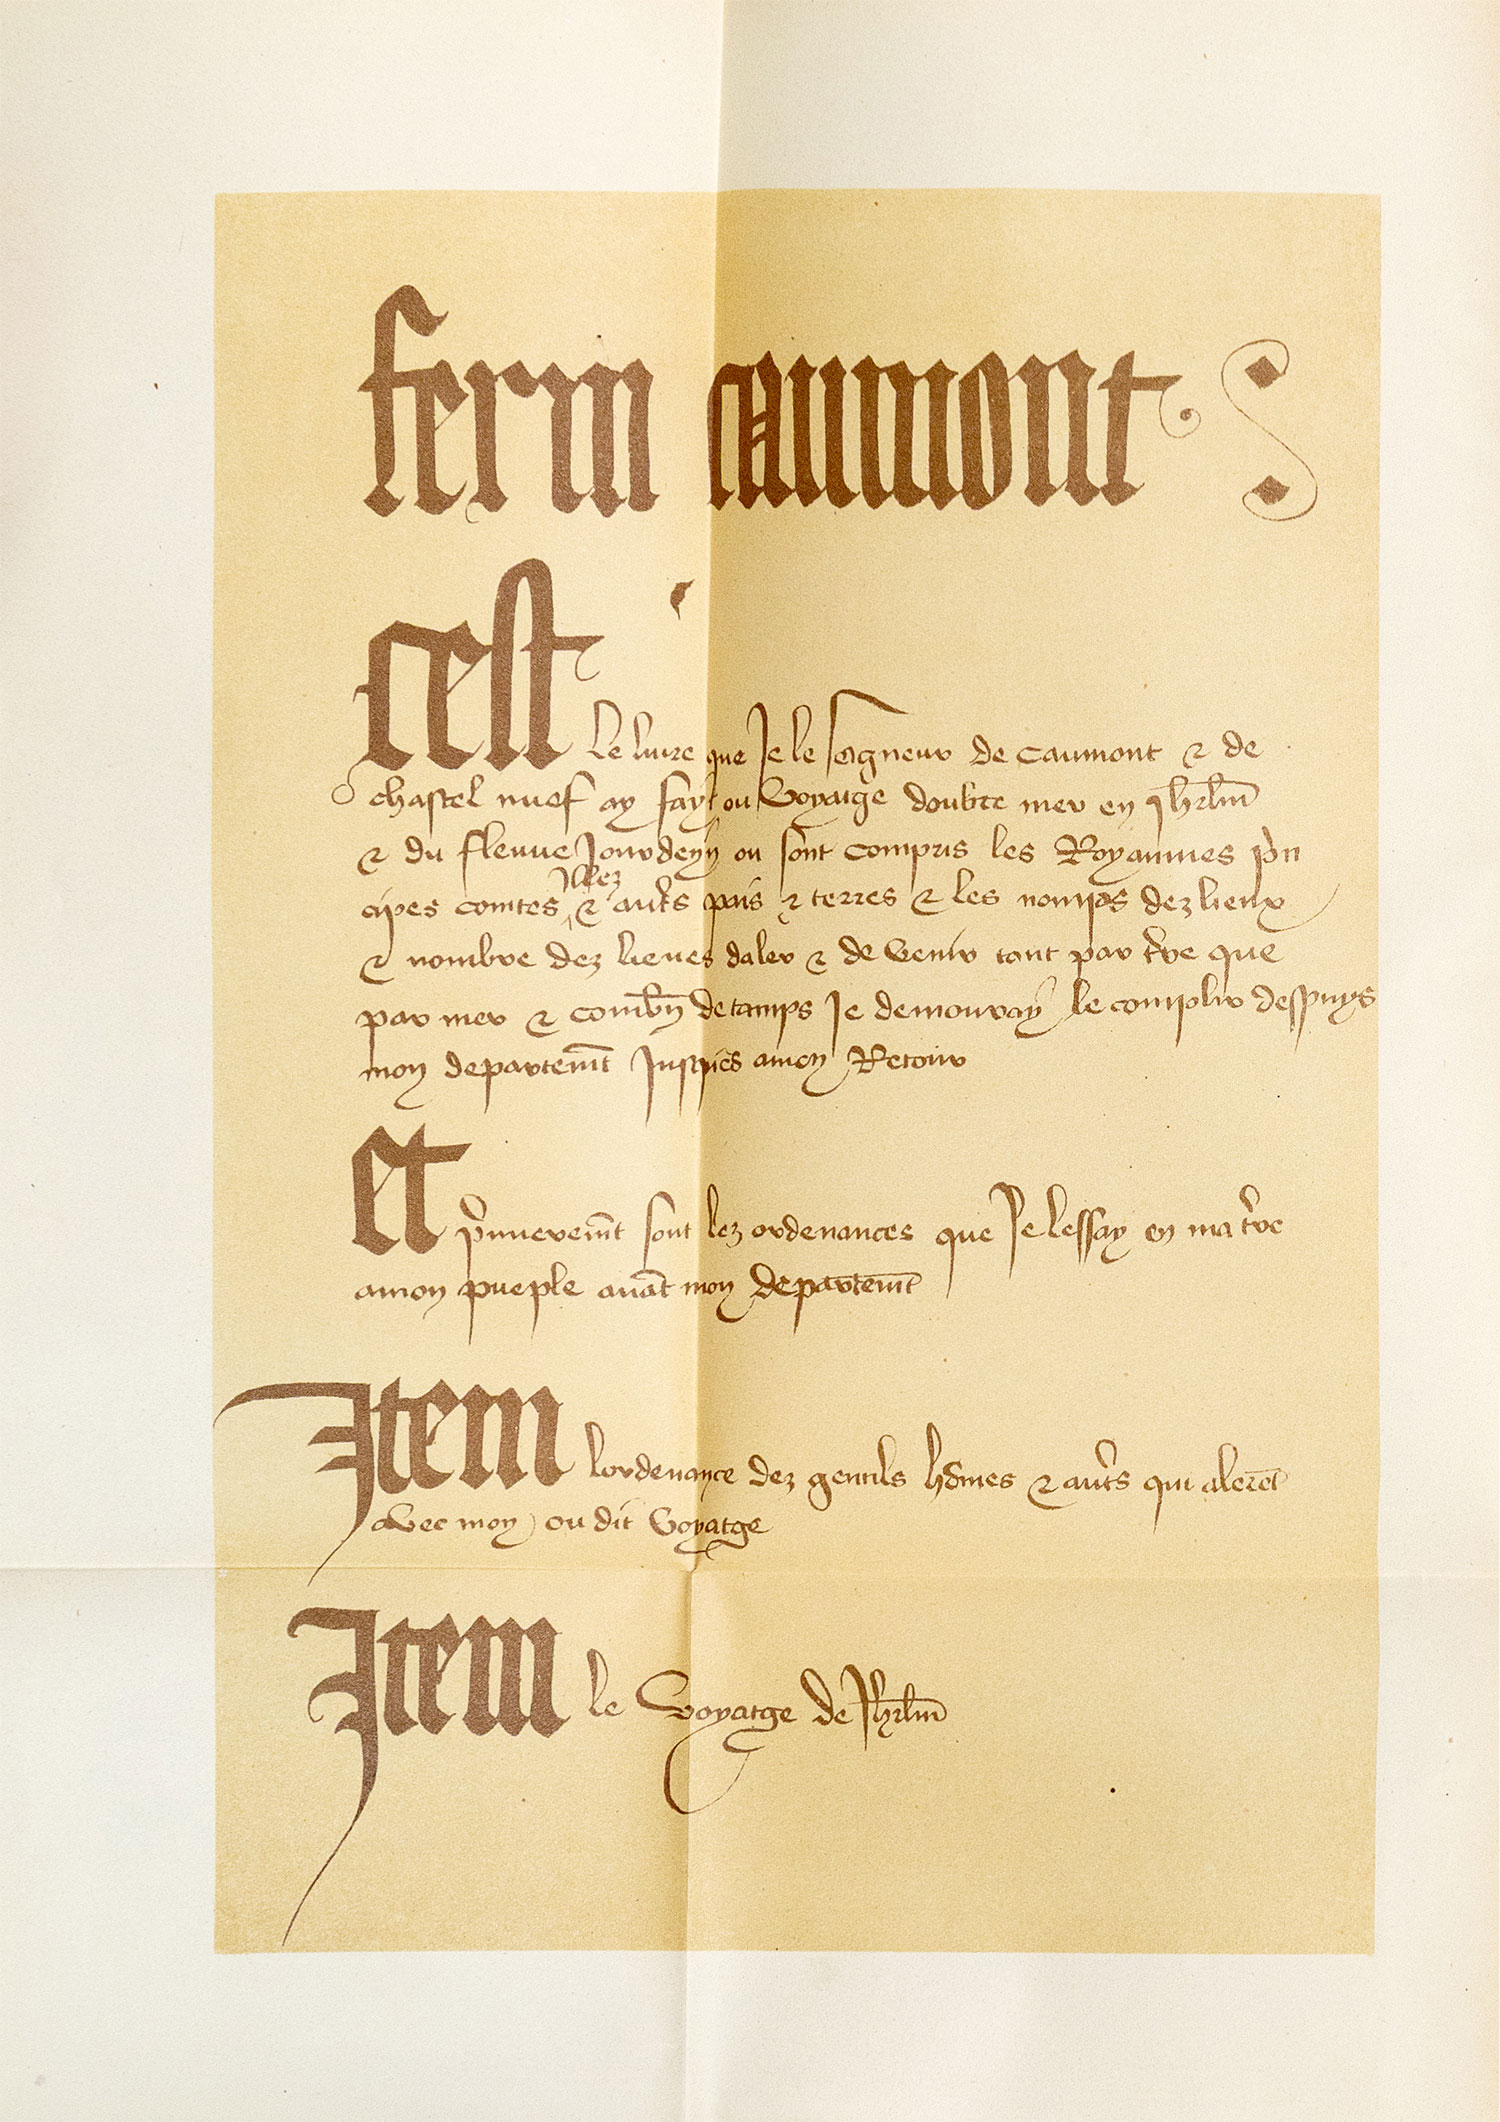 ferm caumont
Cest le livre que Je le seigneur de Caumont & de
chastel nuef ay fayt ou Voyatge doubtre mer en Jhrlm̄
& du fleuve Jourdeyn ou sont compris les Royaumes prin
cipes comtes Illez & autrs païs & terres & les nomps dez lieux
& nombre dez lieues daler & de Venir tant par tr̄re que
par mer & combn̄ de tamps Je demouray le complir despuys
mon departemt̄ Jusques a mon Retour
Et prumeremt̄ sont lez ordenances que Je lessay en ma tr̄re
a mon pueple avāt mon departemt̄
Item lordenance dez gentils hōmes & autrs qui alerēt
avec moy ou dit Voyatge
Item le Voyatge de Jhrlm̄